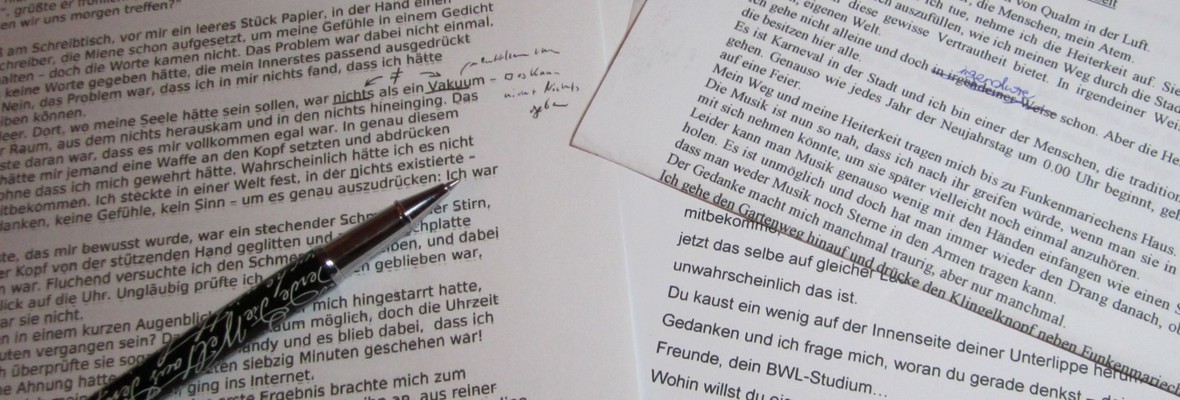 ", grüßte er
en wir uns morgen treffen?"
am Schreibtisch, vor mir ein leeres Stück Papier, in der Hand einen
chreiber, die Miene schon aufgesetzt, um meine Gefühle in einem Gedicht
alten – doch die Worte kamen nicht. Das Problem war dabei nicht einmal,
keine Worte gegeben hätte, die mein Innerstes passend ausgedrückt
Nein, das Problem war, dass ich in mir nichts fand, dass ich hätte
iben können.
leer. Dort, wo meine Seele hätte sein sollen, war nichts als ein Vakuum –
r Raum, aus dem nichts herauskam und in den nichts hineinging. Das
ste daran war, dass es mir vollkommen egal war. In genau diesem
hätte mir jemand eine Waffe an den Kopf setzten und abdrücken
ohne dass ich mich gewehrt hätte. Wahrscheinlich hätte ich es nicht
itbekommen. Ich steckte in einer Welt fest, in der nichts existierte –
danken, keine Gefühle, kein Sinn – um es genau auszudrücken: Ich war
ste, das mir bewusst wurde, war ein stechender der Stirn,
er Kopf von der stützenden Hand geglitten und chplatte
n war. Fluchend versuchte ich den und dabei
lick auf die Uhr. Ungläubig prüfte ich geblieben war,
ar sie nicht.
n in einem kurzen mich hingestarrt hatte,
uten vergangen sein? möglich, doch die Uhrzeit
h überprüfte sie andy und es blieb dabei, dass ich
e Ahnung hatte siebzig Minuten geschehen war!
ging ins Internet.
Ergebnis brachte mich zum
an, aus reiner
≠
nicht nichts
geben
von Qualm in der Luft.
die Menschen, mein Atem.
ich tue, nehme ich die Heiterkeit auf. Sie
auszufüllen, wie ich meinen Weg durch die Stad
eigenen Welt. diese gewisse Vertrautheit bietet. In irgendeiner Wei
die besitzen hier alle.
gehe nicht alleine und doch in irgendeiner Weise schon. Aber die He
irgendwie
Es ist Karneval in der Stadt und ich bin einer der Menschen, die tradition
gehen. Genauso wie jedes Jahr der Neujahrstag um 0.00 Uhr beginnt, geh
auf eine Feier.
Mein Weg und meine Heiterkeit tragen mich bis zu Funkenmariechens Haus.
Die Musik ist nun so nah, dass ich nach ihr greifen würde, wenn man sie in
mit sich nehmen könnte, um sie später vielleicht noch einmal anzuhören.
Leider kann man Musik genauso wenig mit den Händen einfangen wie einen S
holen. Es ist unmöglich und doch hat man immer wieder den Drang danach, ob
dass man weder Musik noch Sterne in den Armen tragen kann.
Der Gedanke macht mich manchmal traurig, aber nur manchmal.
Ich gehe den Gartenweg hinauf und drücke den Klingelknopf neben Funkenmariech
mitbekomme
jetzt das selbe auf gleicher
unwahrscheinlich das ist.
Du kaust ein wenig auf der Innenseite deiner Unterlippe
Gedanken und ich frage mich, woran du gerade denkst –
Freunde, dein BWL-Studium...
Wohin willst du